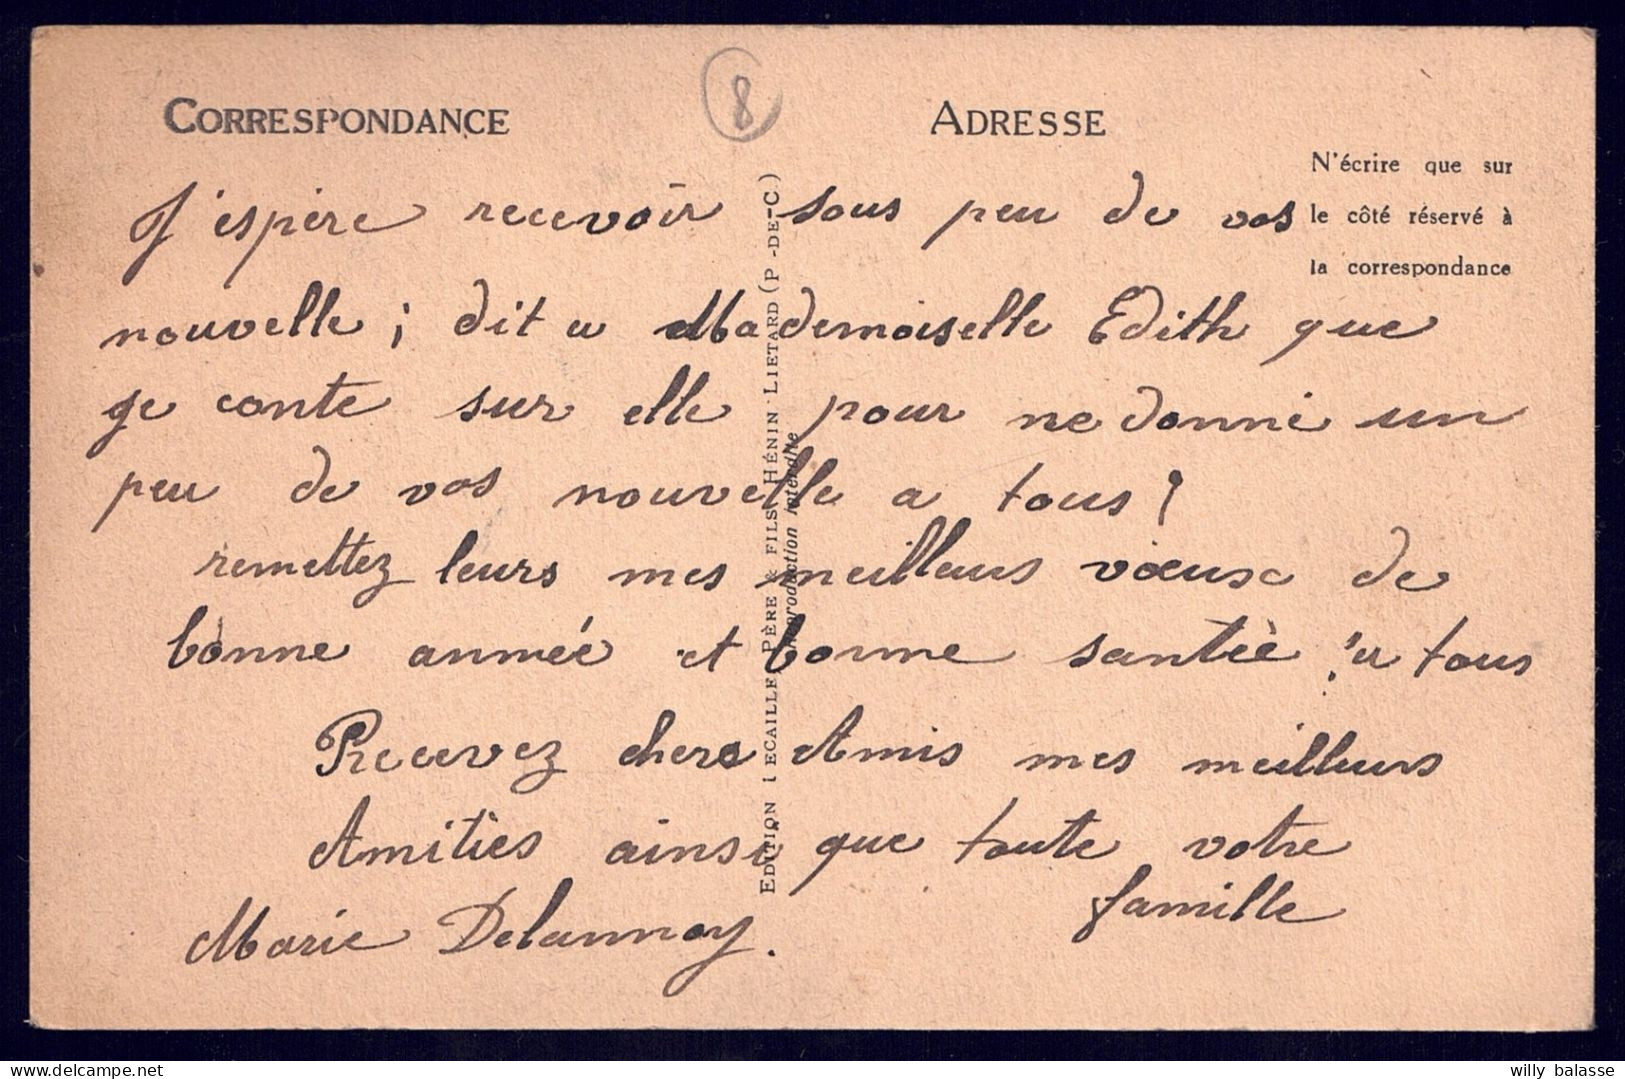 8
CORRESPONDANCE
ADRESSE
N'écrire que sur
le côté réservé à
la correspondance
J'espère recevoir sous peu de vos
nouvelle ; dit a Mademoiselle Edith que
je conte sur elle pour me donné un
peu de vos nouvelle a tous !
remettez leurs mes meilleurs vœux de
bonne année et bonne santée a tous
Recevez chers Amis mes meilleurs
Amitiès ainsi que toute votre
famille
Marie Delannoy.
EDITION LECAILLE, PÈRE & FILS, HÉNIN-LIETARD (P.-DE-C)
Reproduction interdite
willy balasse
©delcampe.net